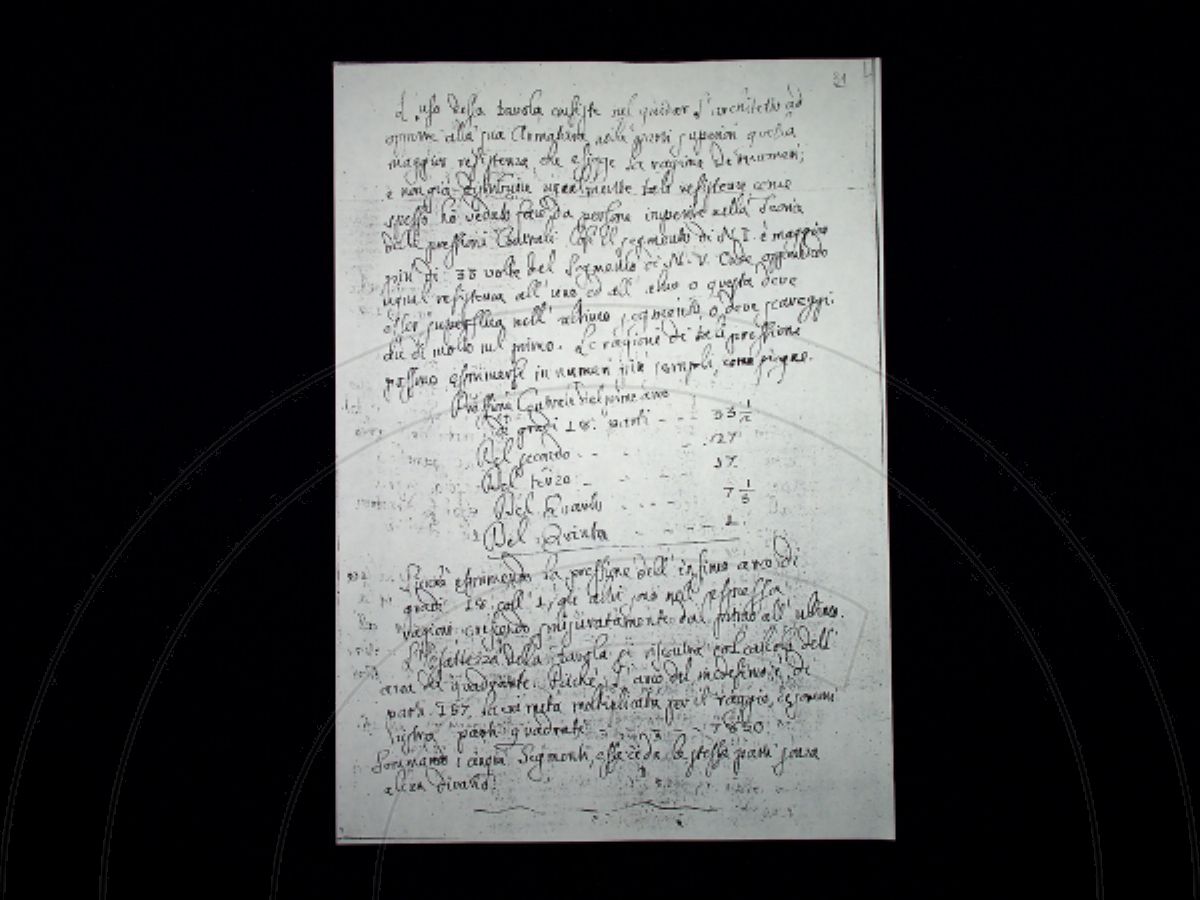 31
L'uso della tavola consiste nel guidar l'architetto ad
opporre alla sua Armatura nelle parti superiori quella
maggior resistenza che esigge la ragione de numeri;
e non già distribuire ugualmente tali resistenze come
spesso ho veduto farsi da persone imperite nella Teoria
delle pressioni Centrali. Così il segmento di N. I. è maggiore
più di 33 volte del Segmento di N. V. Onde opponendo
ugual resistenza all'uno ed all'altro o questa deve
esser superflua nell'ultimo segmento, o deve scareggi
di molto nel primo. Le ragioni di tali pressione
possono esprimersi in numeri più semplici, come siegue.
Pressione Centrale del primo arco
di gradi 18. - - 33 1/2
Del secondo - - 27
Del terzo - - 17
Del Quarto - - - 7 1/3
Del Quinto - - - 1.
Sicché esprimendo la pressione dell'infimo arco di
gradi 18 coll' 1, gli altri sono nell'espressa
ragione crescendo smisuratamente dal primo all'ultimo.
L'esattezza della tavola si riscontra col calcolo dell'
area del quadrante. Poiché l'arco del medesimo è di
parti 157, la cui metà moltiplicata per il raggio,
parti quadrate - - - - 7850
Sommando i cinque Segmenti, esse cede le stesse parti senza
alcun divario.